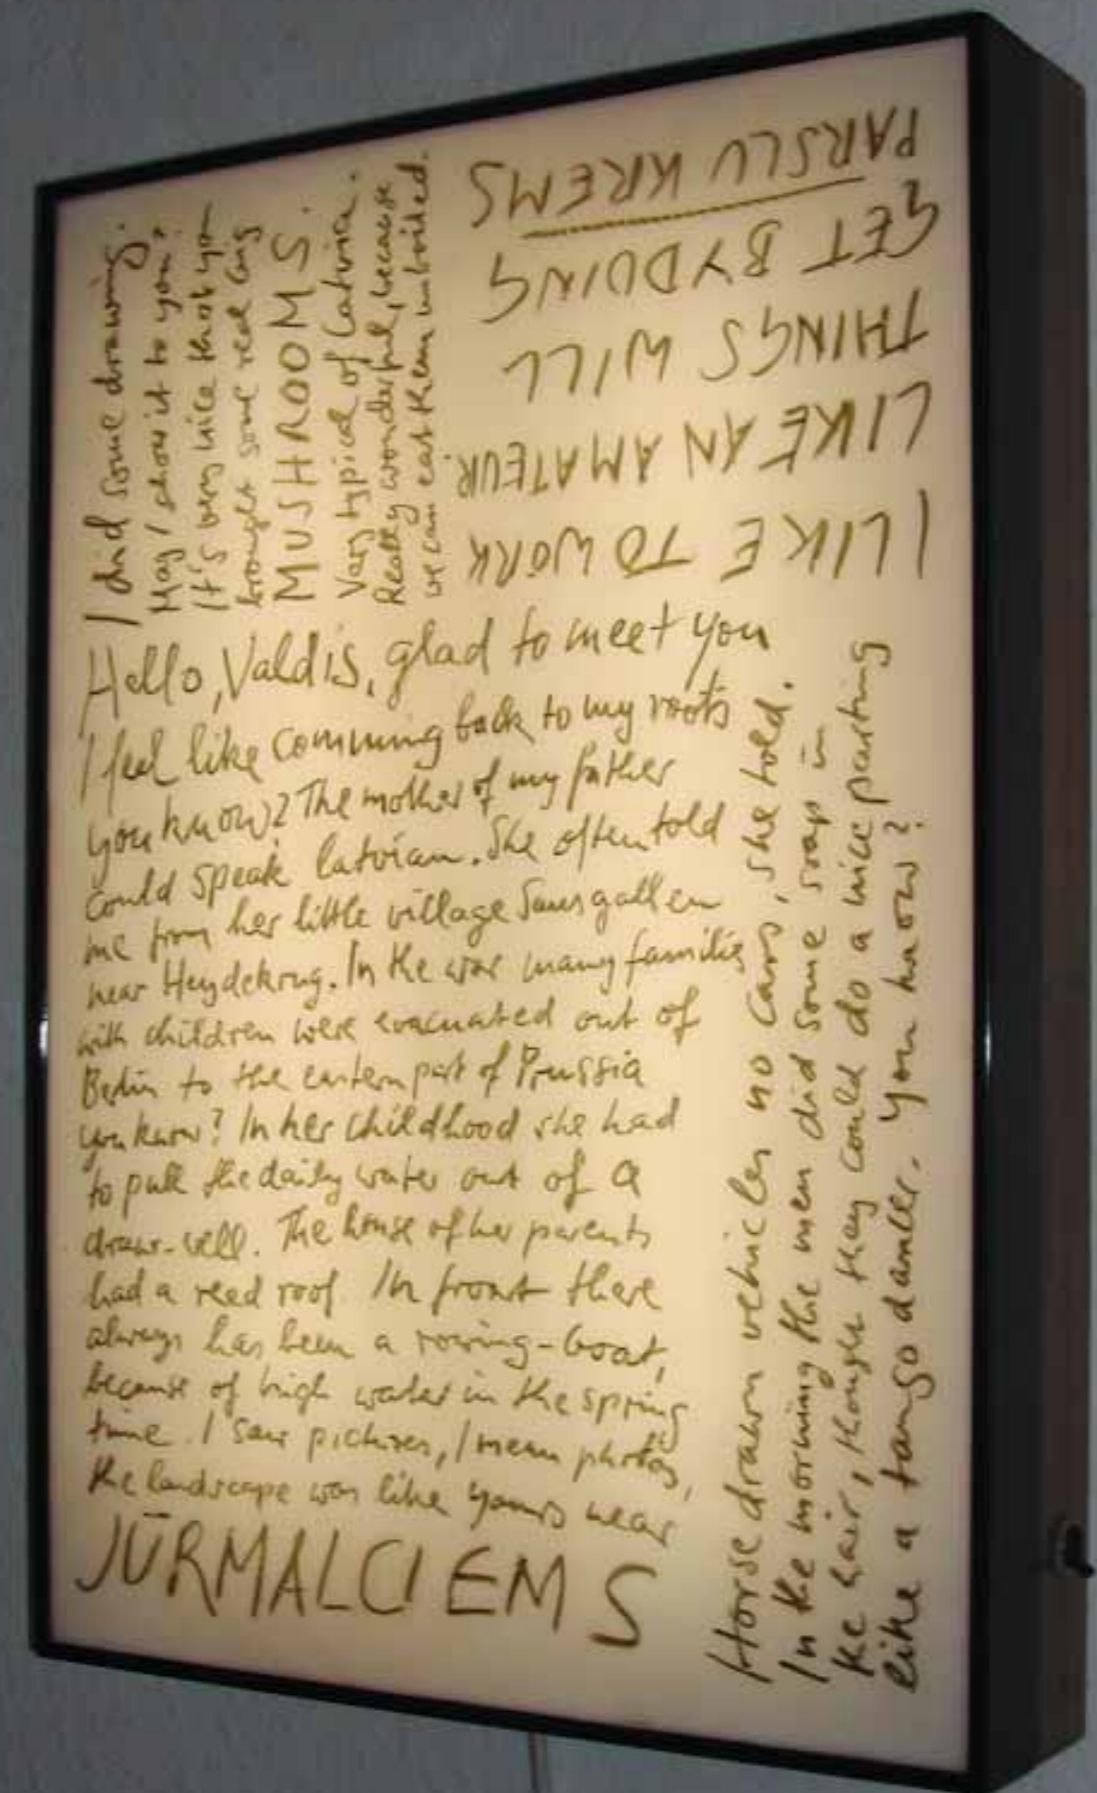 I did some drawing.
May I show it to you?
It's very nice that you
brought some real big
MUSHROOMS.
Very typical of Latvia.
Really wonderful, because
we can eat them unboiled.
I LIKE TO WORK
LIKE AN AMATEUR.
THINGS WILL
GET BY DOING
PARSLU KREMS
Hello, Valdis, glad to meet you
I feel like comming back to my roots
you know? The mother of my father
could speak latvian. She often told
me from her little village Sausgallen
near Heydekrug. In the war many families
with children were evacuated out of
Berlin to the eastern part of Prussia
you know? In her childhood she had
to pull the daily water out of a
draw-well. The house of her parents
had a reed roof. In front there
always has been a rowing-boat,
because of high water in the spring
time. I saw pictures, I mean photos,
the landscape was like yours near
JŪRMALCIEMS
Horse drawn vehicles no cars, she told.
In the morning the men did some soap in
the hair, thought they could do a nice parting
like a tango dancer. You know?